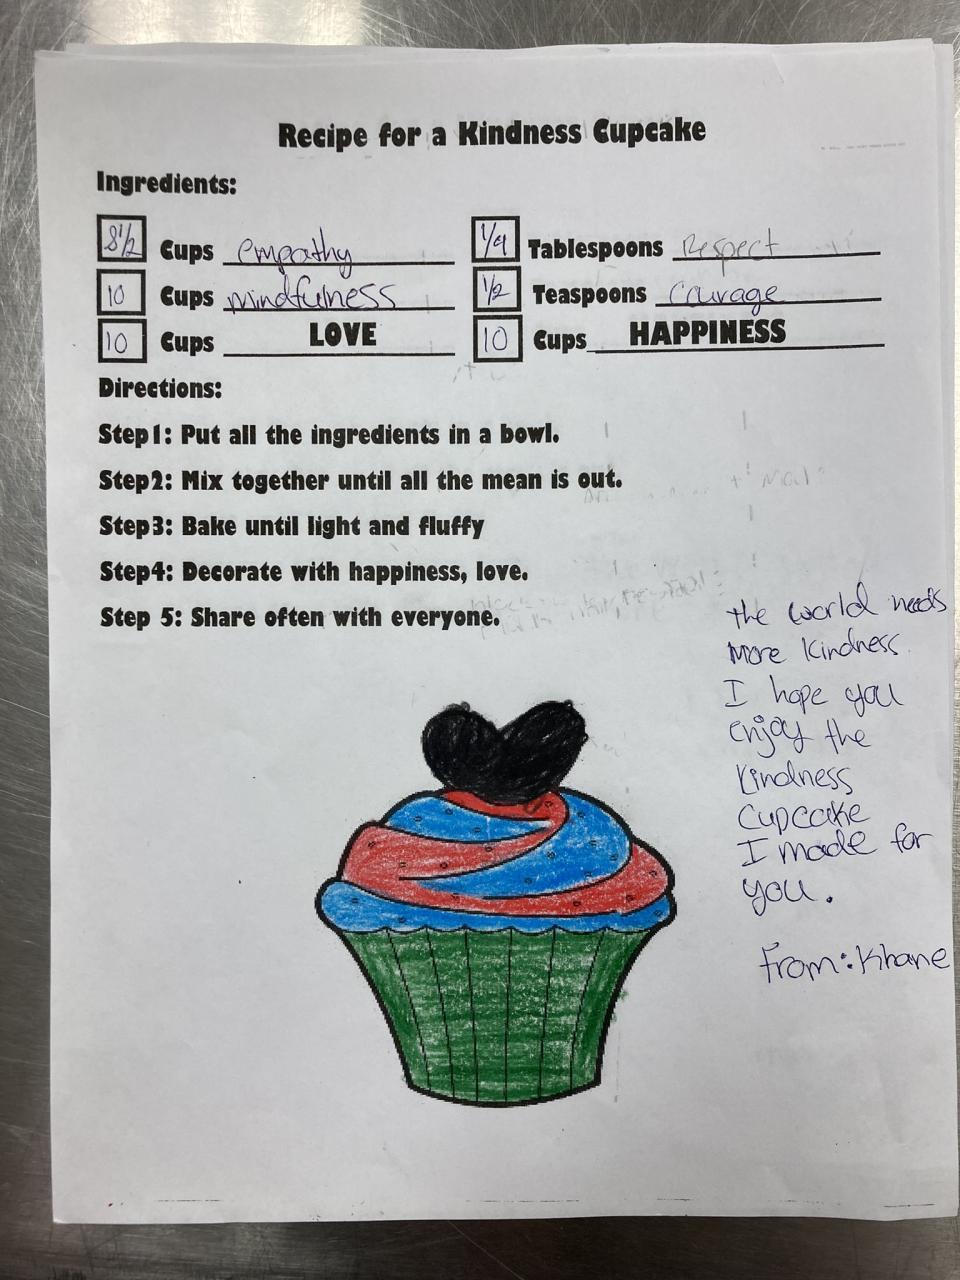 Recipe for a Kindness Cupcake
Ingredients:
8 1/2 Cups empathy 1/4 Tablespoons Respect
10 Cups mindfulness 1/2 Teaspoons Courage
10 Cups LOVE 10 Cups HAPPINESS
Directions:
Step1: Put all the ingredients in a bowl.
Step2: Mix together until all the mean is out.
Step3: Bake until light and fluffy
Step4: Decorate with happiness, love.
Step 5: Share often with everyone.
the world needs
More Kindness.
I hope you
enjoy the
Kindness
Cupcake
I made for
you.
From: Khane